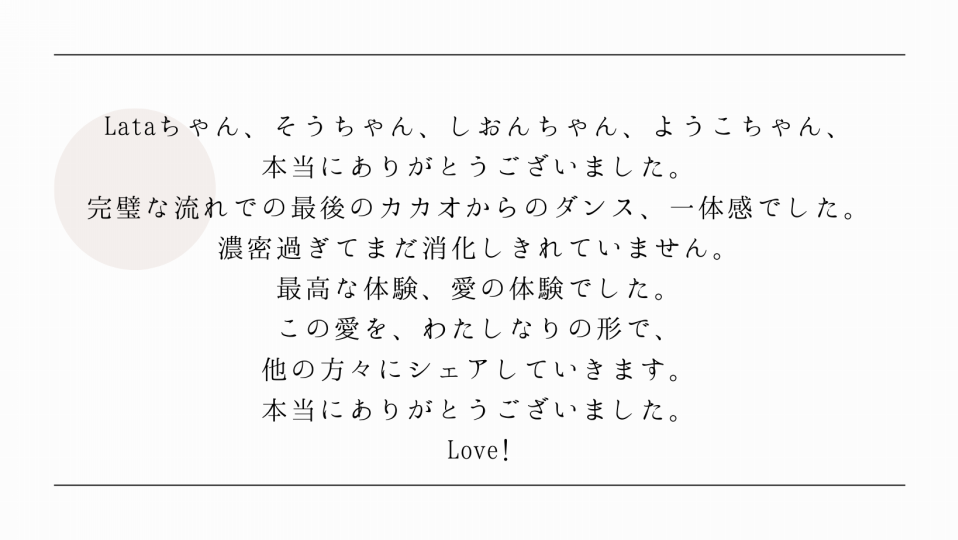 Lataちゃん、そうちゃん、しおんちゃん、ようこちゃん、
本当にありがとうございました。
完璧な流れでの最後のカカオからのダンス、一体感でした。
濃密過ぎてまだ消化しきれていません。
最高な体験、愛の体験でした。
この愛を、わたしなりの形で、
他の方々にシェアしていきます。
本当にありがとうございました。
Love!